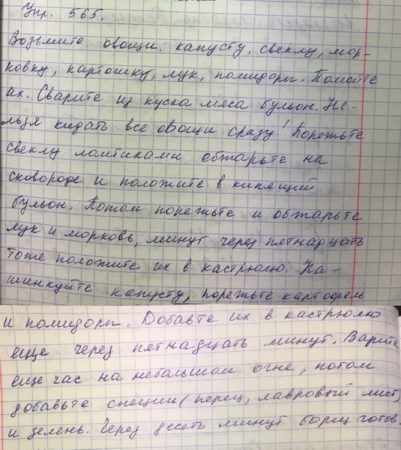 Упр. 565.
Возьмите овощи: капусту, свеклу, мор-
ковку, картошку, лук, помидоры. Помойте
их. Сварите из куска мяса бульон. Не-
льзя кидать все овощи сразу! Порежьте
свеклу ломтиками, обжарьте на
сковороде и положите в кипящий
бульон. Потом порежьте и обжарьте
лук и морковь, минут через пятнадцать
тоже положите их в кастрюлю. На-
шинкуйте капусту, порежьте картофель
и помидоры. Добавте их в кастрюлю
еще через пятнадцать минут. Варите
еще час на небольшом огне, потом
добавьте специи (перец, лавровый лист)
и зелень. Через десять минут борщ готов.